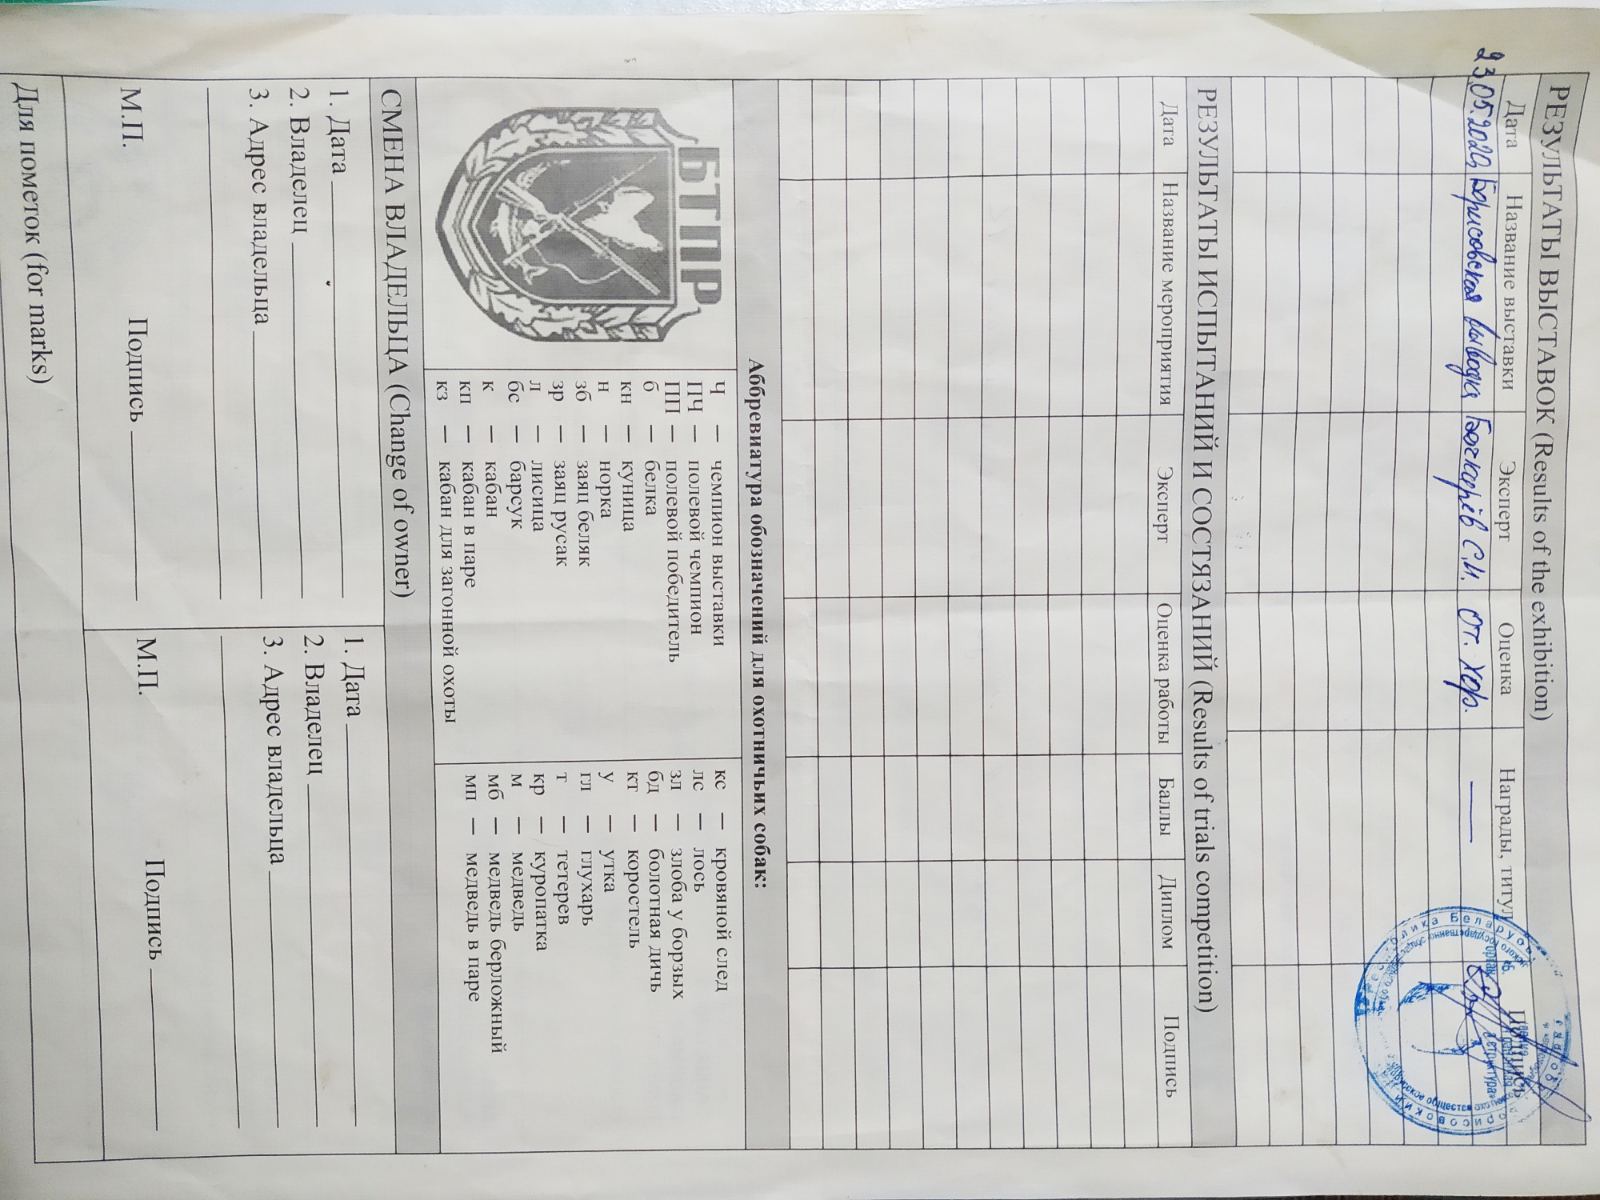 РЕЗУЛЬТАТЫ ВЫСТАВОК (Results of the exhibition)
Дата Название выставки Эксперт Оценка Награды, титул Подпись
23.05.2020 Борисовская выводка С.И. от. хор. —
РЕЗУЛЬТАТЫ ИСПЫТАНИЙ И СОСТЯЗАНИЙ (Results of trials competition)
Дата Название мероприятия Эксперт Оценка работы Баллы Диплом Подпись
Аббревиатура обозначений для охотничьих собак:
БТПР
Ч — чемпион выставки
ПЧ — полевой чемпион
ПП — полевой победитель
б — белка
кн — куница
н — норка
зб — заяц беляк
зр — заяц русак
л — лисица
бс — барсук
к — кабан
кп — кабан в паре
кз — кабан для загонной охоты
кс — кровяной след
лс — лось
зл — злоба у борзых
бд — болотная дичь
кт — коростель
у — утка
гл — глухарь
т — тетерев
кр — куропатка
м — медведь
мб — медведь берложный
мп — медведь в паре
СМЕНА ВЛАДЕЛЬЦА (Change of owner)
1. Дата
2. Владелец
3. Адрес владельца
М.П. Подпись
1. Дата
2. Владелец
3. Адрес владельца
М.П. Подпись
Для пометок (for marks)